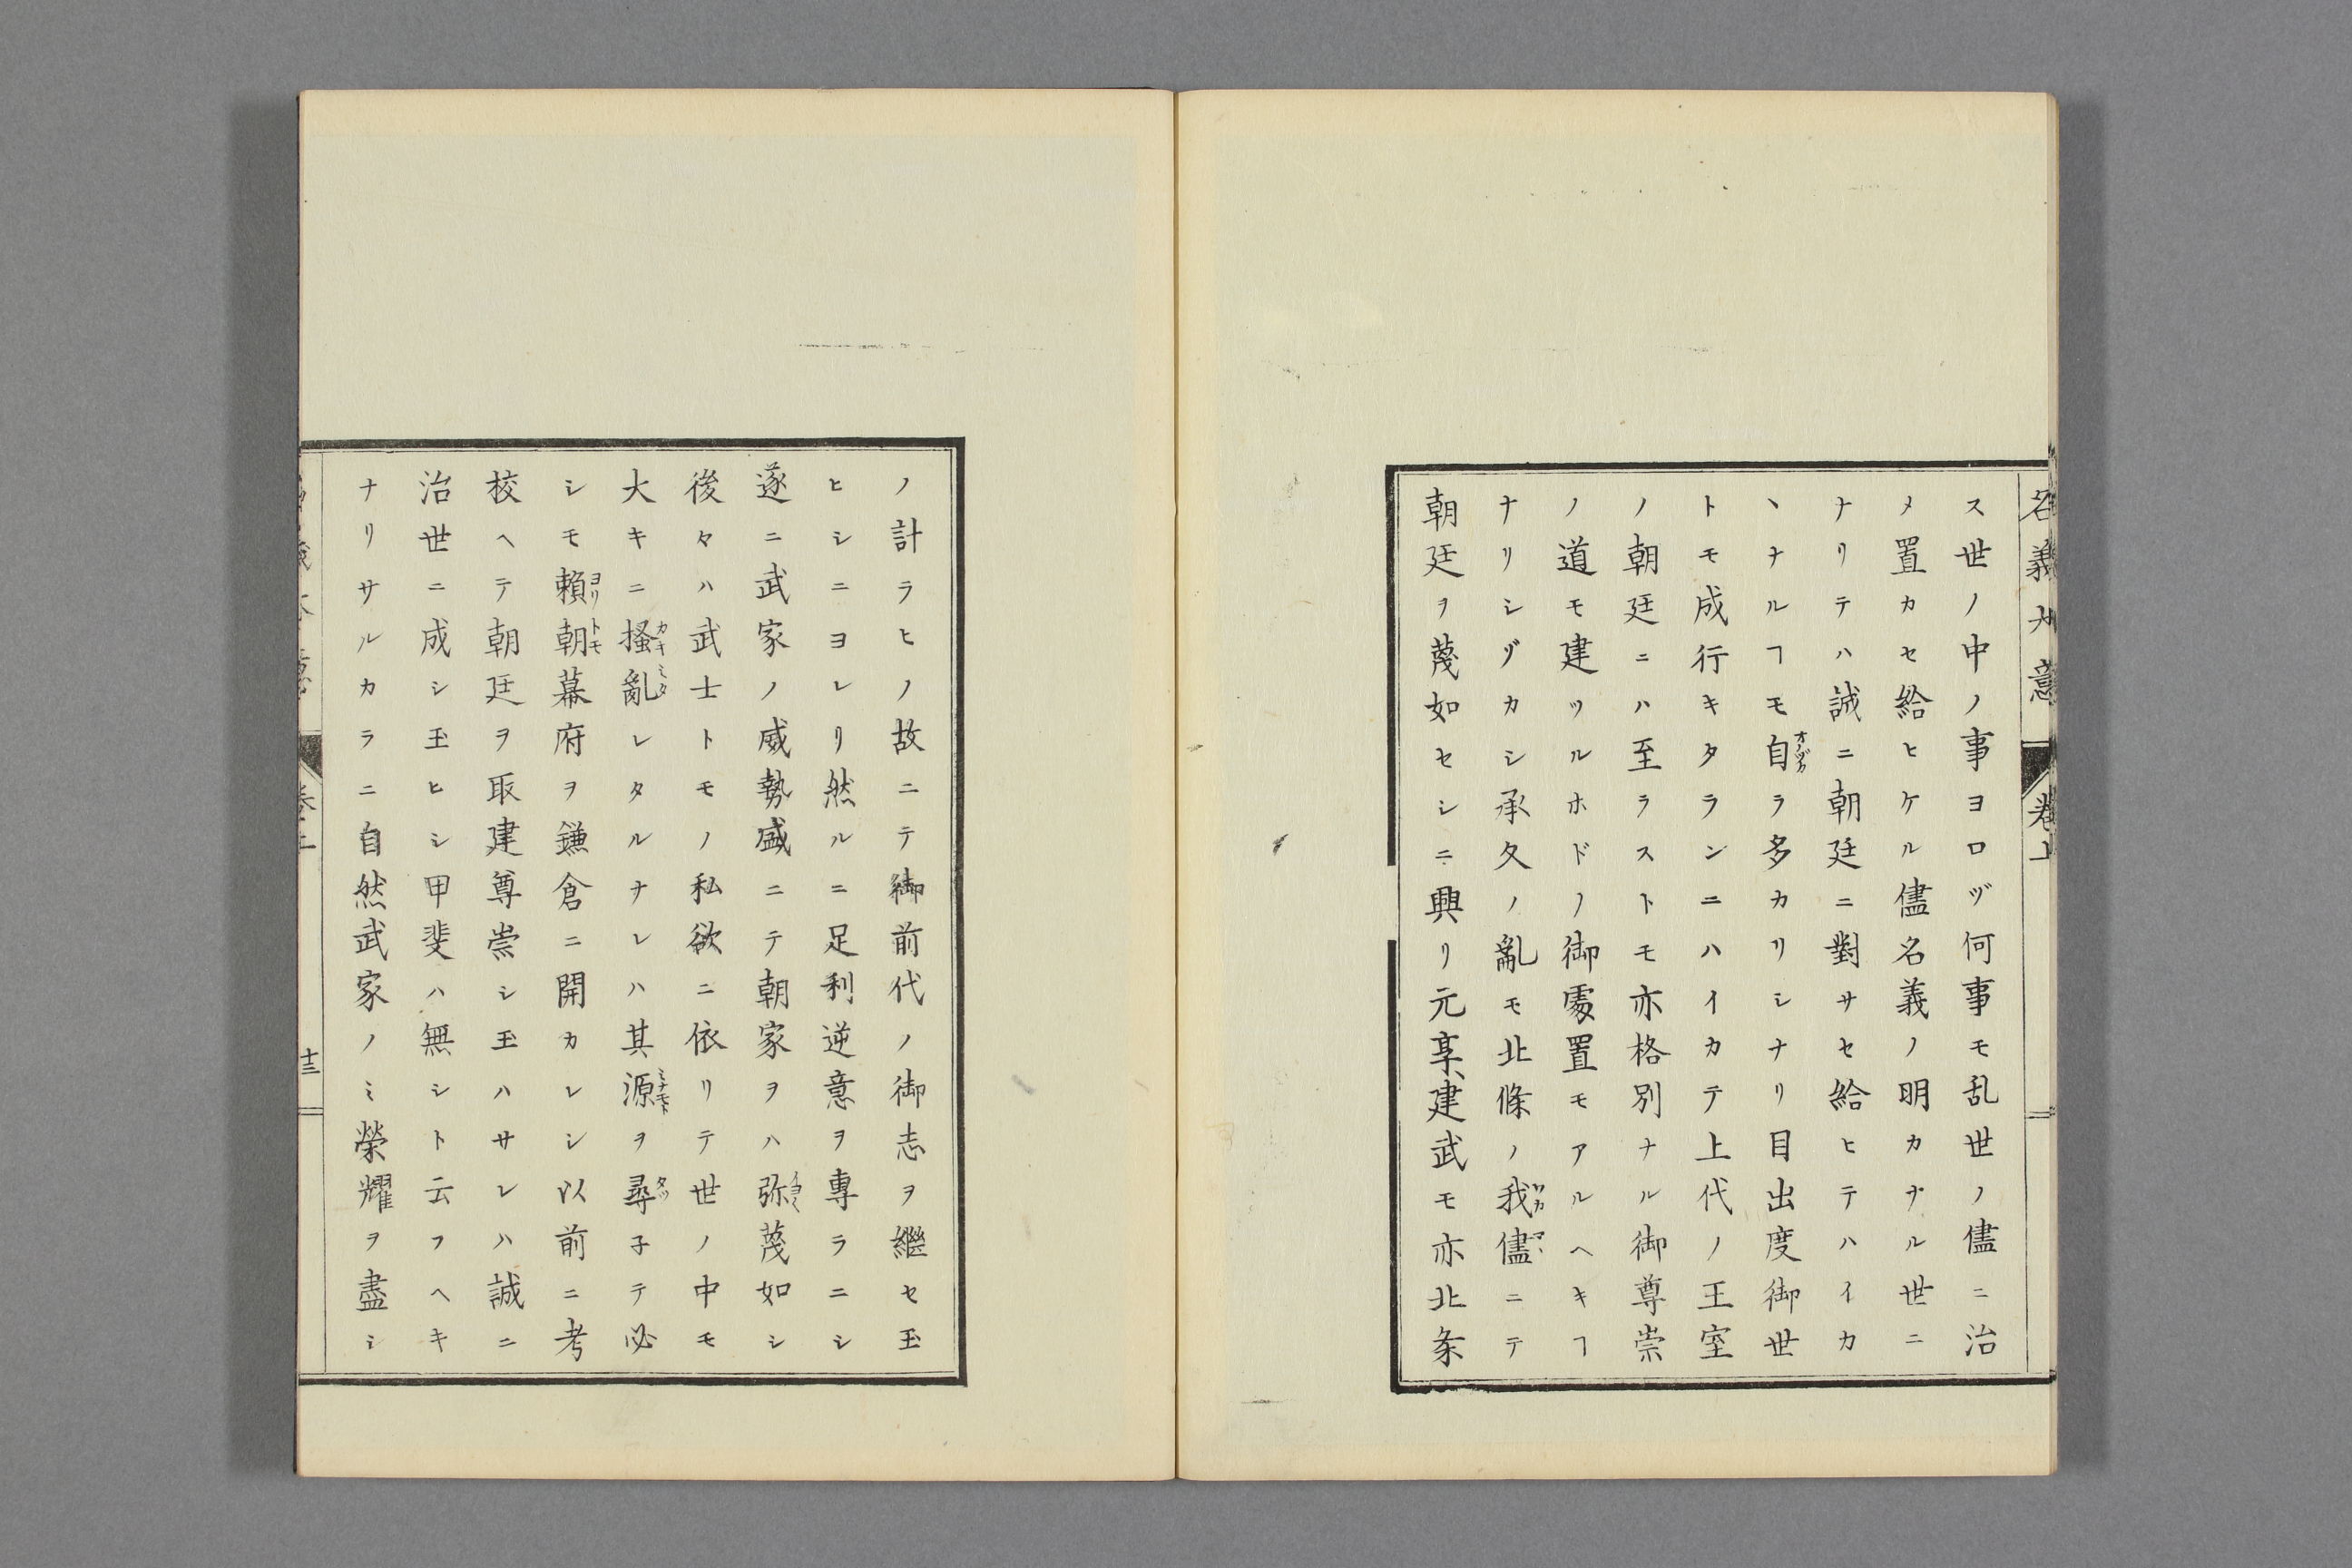 名義大意
卷上
ス世ノ中ノ事ヨロヅ何事モ乱世ノ儘ニ治
メ置カセ給ヒケル儘名義ノ明カナル世ニ
ナリテハ誠ニ朝廷ニ對サセ給ヒテハイカ
ヽナルヿモ自ラ多カリシナリ目出度御世
オノヅカ
トモ成行キタランニハイカテ上代ノ王室
ノ朝廷ニハ至ラストモ亦格別ナル御尊崇
ノ道モ建ツルホドノ御處置モアルヘキヿ
ナリシヅカシ承久ノ亂モ北條ノ我儘ニテ
ワカマヽ
朝廷ヲ蔑如セシニ興リ元享建武モ亦北条
ノ計ラヒノ故ニテ御前代ノ御志ヲ繼セ玉
ヒシニヨレリ然ルニ足利逆意ヲ專ラニシ
遂ニ武家ノ威勢盛ニテ朝家ヲハ弥蔑如シ
イヨ〱
後々ハ武士トモノ私欲ニ依リテ世ノ中モ
大キニ搔亂レタルナレハ其源ヲ尋子テ必
カキミタ
ミナモト
タツ
シモ賴朝幕府ヲ鎌倉ニ開カレシ以前ニ考
ヨリトモ
校ヘテ朝廷ヲ取建尊崇シ玉ハサレハ誠ニ
治世ニ成シ玉ヒシ甲斐ハ無シト云フヘキ
ナリサルカラニ自然武家ノミ榮耀ヲ盡シ
十三